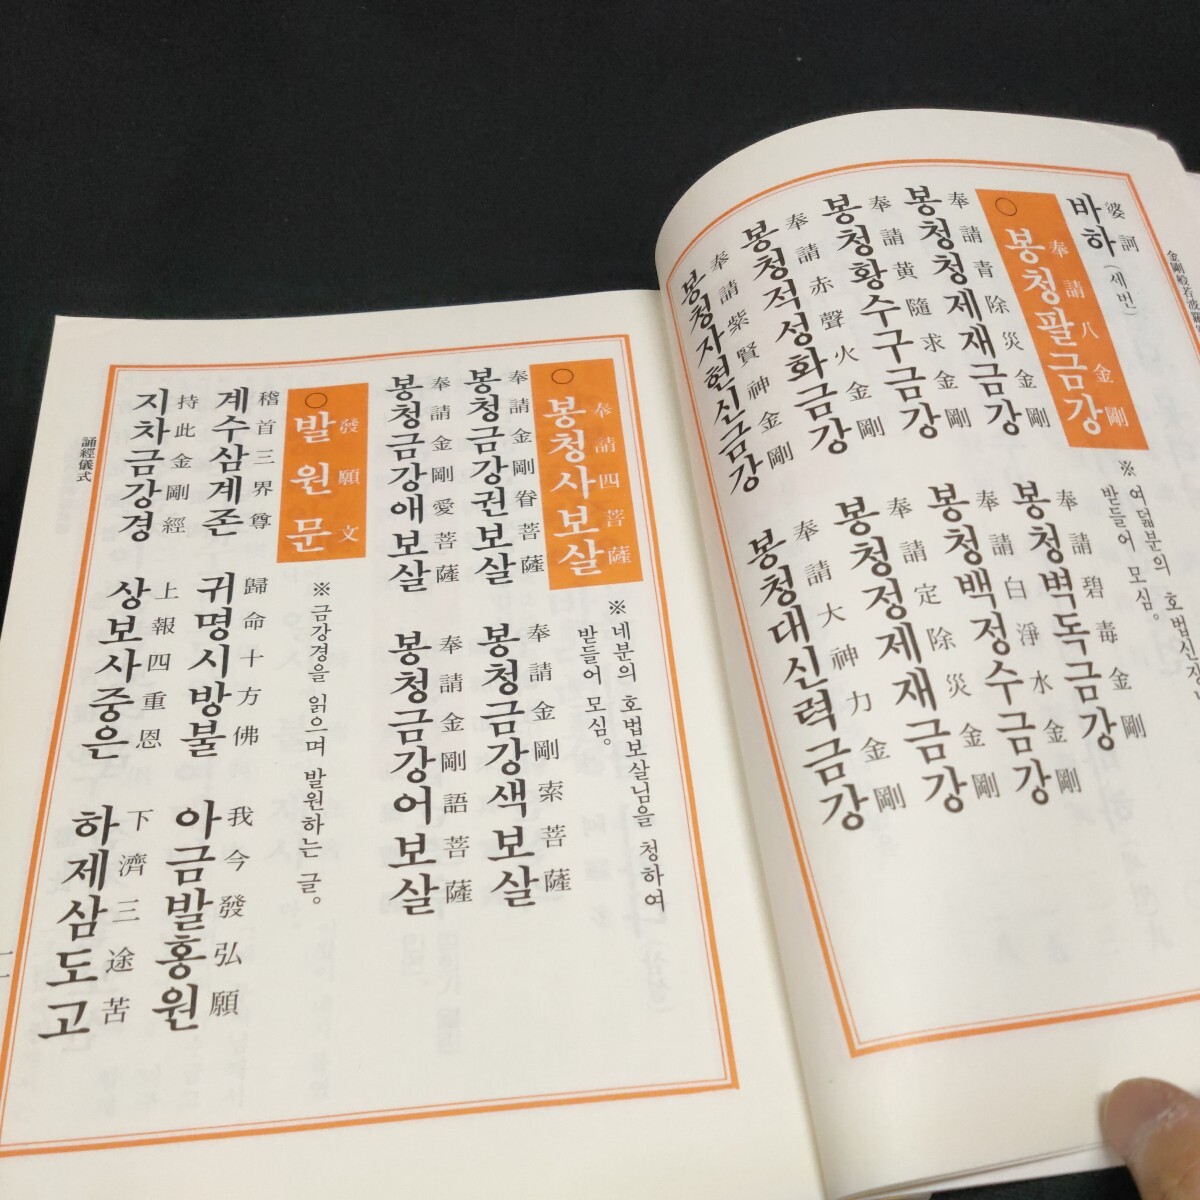 金剛般若波羅
婆訶
바하 (세번)
奉請八金剛
○ 봉청팔금강
※ 여덟분의 호법신장
받들어 모심。
奉請青除災金剛
봉청청제재금강
奉請碧毒金剛
봉청벽독금강
奉請黃隨求金剛
봉청황수구금강
奉請白淨水金剛
봉청백정수금강
奉請赤聲火金剛
봉청적성화금강
奉請定除災金剛
봉청정제재금강
奉請紫賢神金剛
봉청자현신금강
奉請大神力金剛
봉청대신력금강
奉請四菩薩
○ 봉청사보살
※ 네분의 호법보살님을 청하여
받들어 모심。
奉請金剛眷菩薩
봉청금강권보살
奉請金剛索菩薩
봉청금강색보살
奉請金剛愛菩薩
봉청금강애보살
奉請金剛語菩薩
봉청금강어보살
發願文
○ 발원문
※ 금강경을 읽으며 발원하는 글。
稽首三界尊
계수삼계존
歸命十方佛
귀명시방불
我今發弘願
아금발홍원
持此金剛經
지차금강경
上報四重恩
상보사중은
下濟三途苦
하제삼도고
誦經儀式